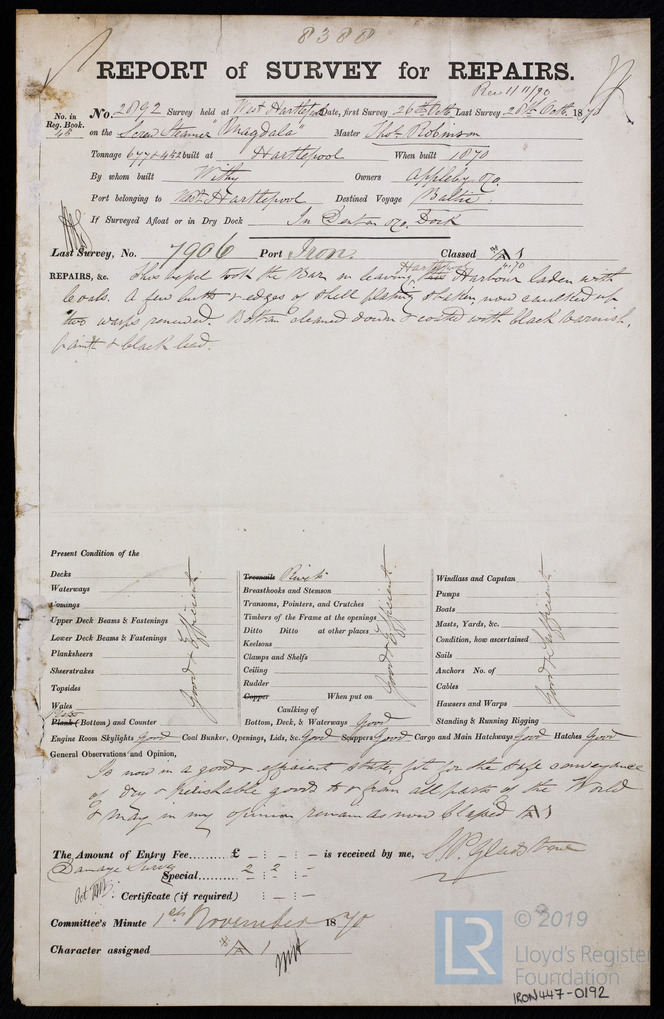 8388
REPORT of SURVEY for REPAIRS.
Rec 1/11/70
No. in Reg. Book. 45
No. 2892 Survey held at West Hartlepool Date, first Survey 26th Octb. Last Survey 28th Octb. 1870
on the Screw Steamer "Magdala" Master Thos. Robinson
Tonnage 677 & 452 built at Hartlepool When built 1870
By whom built Withy Owners Appleby & Co.
Port belonging to West Hartlepool Destined Voyage Baltic.
If Surveyed Afloat or in Dry Dock In Denton & Co. Dock
Last Survey, No. 7906 Port Iron. Classed A 1
4.70
REPAIRS, &c. This vessel took the Bar in leaving Hartlepool Harbour laden with
Coals. A few butts & edges of shell plating started, now caulked up
two warps renewed. Bottom cleaned down & coated with black varnish,
paint & black lead.
Present Condition of the
Decks
Waterways
Comings
Upper Deck Beams & Fastenings
Lower Deck Beams & Fastenings
Planksheers
Sheerstrakes
Topsides
Wales
Plank (Bottom) and Counter
Good & Efficient.
Treenails Rivets
Breasthooks and Stemson
Transoms, Pointers, and Crutches
Timbers of the Frame at the openings
Ditto Ditto at other places
Keelsons
Clamps and Shelfs
Ceiling
Rudder
Copper When put on
Caulking of
Bottom, Deck, & Waterways Good
Good & Efficient.
Windlass and Capstan
Pumps
Boats
Masts, Yards, &c.
Condition, how ascertained
Sails
Anchors No. of
Cables
Hawsers and Warps
Standing & Running Rigging
Good & Efficient
Engine Room Skylights Good Coal Bunker, Openings, Lids, &c. Good Scuppers Good Cargo and Main Hatchways Good Hatches Good
General Observations and Opinion,
Is now in a good & efficient state, fit for the safe conveyance
of dry & perishable goods to & from all parts of the World
& may in my opinion remain as now Classed A 1
The Amount of Entry Fee......... £ - : - : - is received by me,
Damage Survey
Special......... 2 : 2 : -
Certificate (if required)
Committee's Minute 1st November 1870
Character assigned A 1
© 2019
LR
Lloyd's Register
Foundation
IRON447-0192